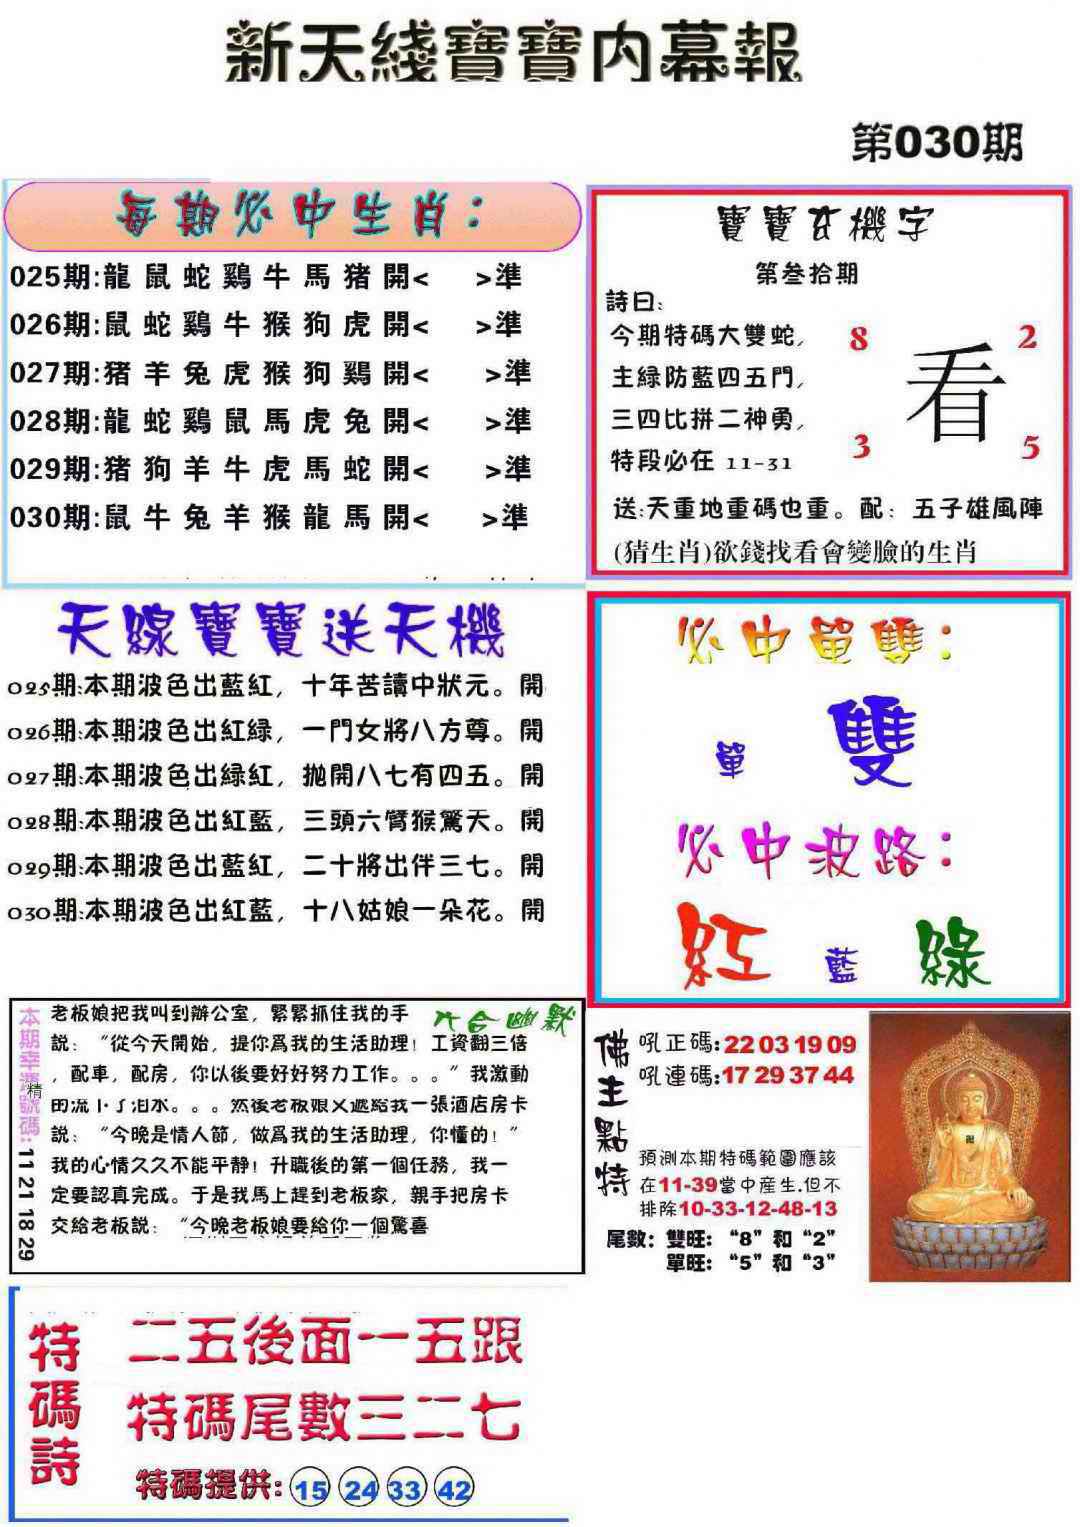 新天綫寶寶内幕報
第030期
每期必中生肖：
025期:龍鼠蛇鷄牛馬猪開< >準
026期:鼠蛇鷄牛猴狗虎開< >準
027期:猪羊兔虎猴狗鷄開< >準
028期:龍蛇鷄鼠馬虎兔開< >準
029期:猪狗羊牛虎馬蛇開< >準
030期:鼠牛兔羊猴龍馬開< >準
寶寶玄機字
第叁拾期
詩曰:
今期特碼大雙蛇,
主緑防藍四五門,
三四比拼二神勇,
特段必在 11-31
8 2
看
3 5
送:天重地重碼也重。配：五子雄風陣
(猜生肖)欲錢找看會變臉的生肖
天線寶寶送天機
025期:本期波色出藍紅，十年苦讀中狀元。開
026期:本期波色出紅緑，一門女將八方尊。開
027期:本期波色出緑紅，抛開八七有四五。開
028期:本期波色出紅藍，三頭六臂猴驚天。開
029期:本期波色出藍紅，二十將出伴三七。開
030期:本期波色出紅藍，十八姑娘一朵花。開
必中單雙：
單 雙
必中波路：
紅 藍 綠
本期幸運號碼: 11 21 18 29
精
六合幽默
老板娘把我叫到辦公室，緊緊抓住我的手
説：“從今天開始，提你爲我的生活助理！工資翻三倍
，配車，配房，你以後要好好努力工作。。。”我激動
的流下了泪水。。。然後老板娘又遞給我一張酒店房卡
説：“今晚是情人節，做爲我的生活助理，你懂的！”
我的心情久久不能平静！升職後的第一個任務，我一
定要認真完成。于是我馬上趕到老板家，親手把房卡
交給老板説：“今晚老板娘要給你一個驚喜
佛主點特
吼正碼:22 03 19 09
吼連碼:17 29 37 44
預測本期特碼範圍應該
在11-39當中産生.但不
排除10-33-12-48-13
尾數：雙旺：“8”和“2”
單旺：“5”和“3”
特碼詩
二五後面一五跟
特碼尾數三二七
特碼提供: 15 24 33 42